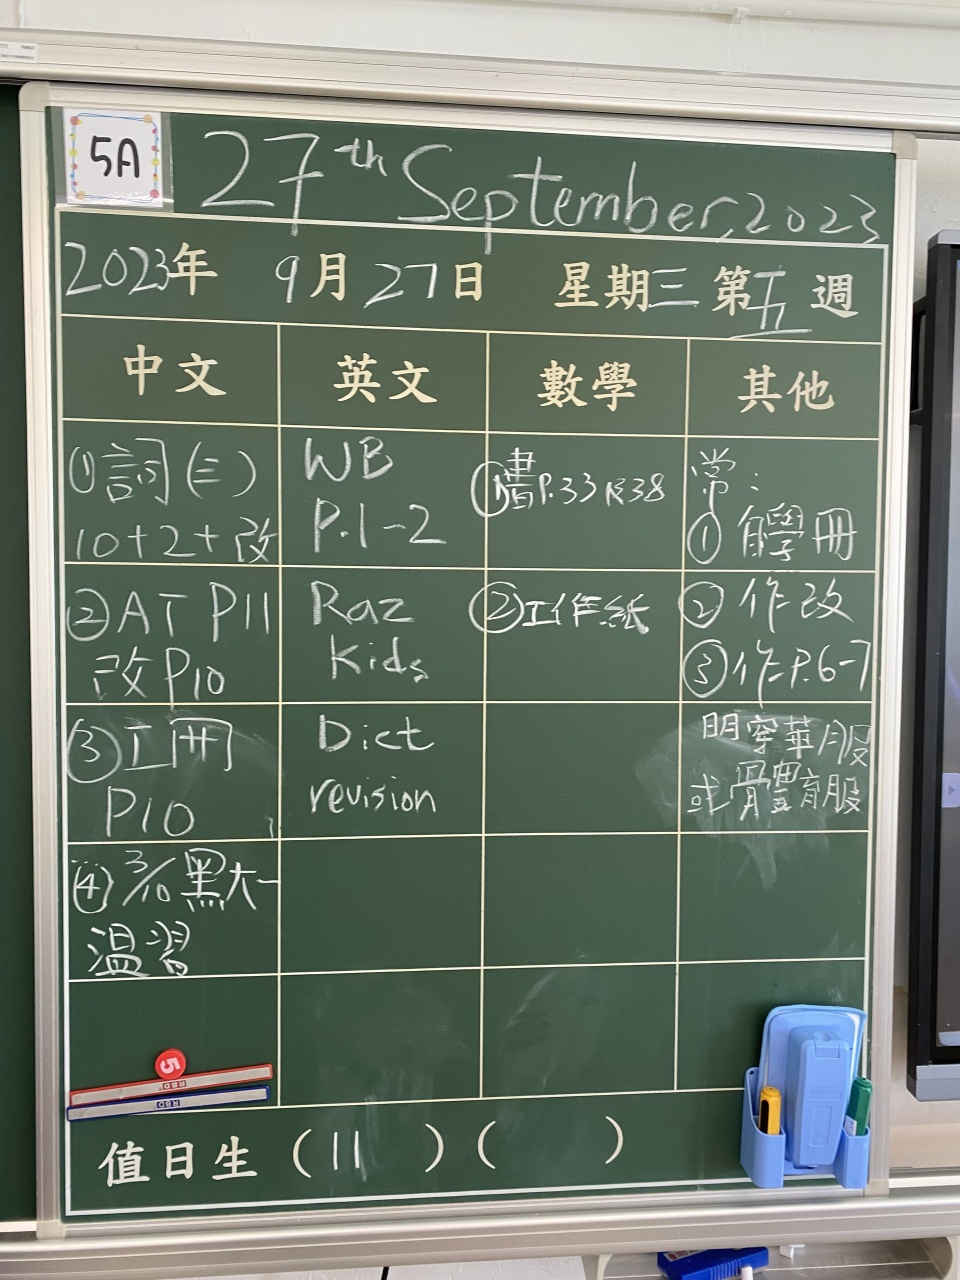 5A
27th September, 2023
2023年 9月27日 星期三 第五週
中文 英文 數學 其他
①詞(三)
10+2+改
WB
P.1-2
①書P.33及38
常:
①自學冊
②AT P11
改P10
Raz
Kids
②工作紙
②作改
③作P.6-7
③工冊
P10
Dict
revision
明穿華服
或體育服
④3/10黑大一
溫習
5
RBD
RBD
值日生(11 )( )